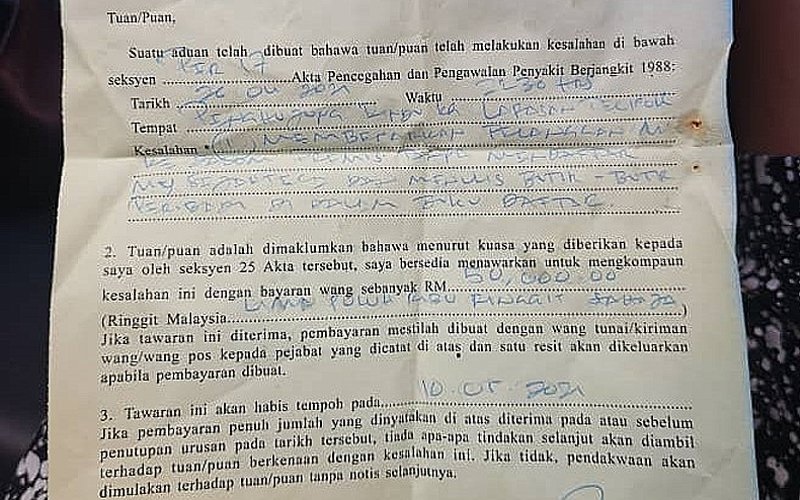 Tuan/Puan,
Suatu aduan telah dibuat bahawa tuan/puan telah melakukan kesalahan di bawah
seksyen PER 17 Akta Pencegahan dan Pengawalan Penyakit Berjangkit 1988:
Tarikh 26 04 2021 Waktu
Tempat
Kesalahan * (1) MEMBENARKAN PELANGGAN
PREMIS MENDAFTAR
MYSEJAHTERA DAN MENULIS BUTIR-BUTIR
PERIBADI DI DALAM BUKU DAFTAR.
2. Tuan/puan adalah dimaklumkan bahawa menurut kuasa yang diberikan kepada
saya oleh seksyen 25 Akta tersebut, saya bersedia menawarkan untuk mengkompaun
kesalahan ini dengan bayaran wang sebanyak RM 50,000.00
(Ringgit Malaysia LIMA PULUH RIBU RINGGIT SAHAJA)
Jika tawaran ini diterima, pembayaran mestilah dibuat dengan wang tunai/kiriman
wang/wang pos kepada pejabat yang dicatat di atas dan satu resit akan dikeluarkan
apabila pembayaran dibuat.
3. Tawaran ini akan habis tempoh pada 10.05.2021
Jika pembayaran penuh jumlah yang dinyatakan di atas diterima pada atau sebelum
penutupan urusan pada tarikh tersebut, tiada apa-apa tindakan selanjut akan diambil
terhadap tuan/puan berkenaan dengan kesalahan ini. Jika tidak, pendakwaan akan
dimulakan terhadap tuan/puan tanpa notis selanjutnya.